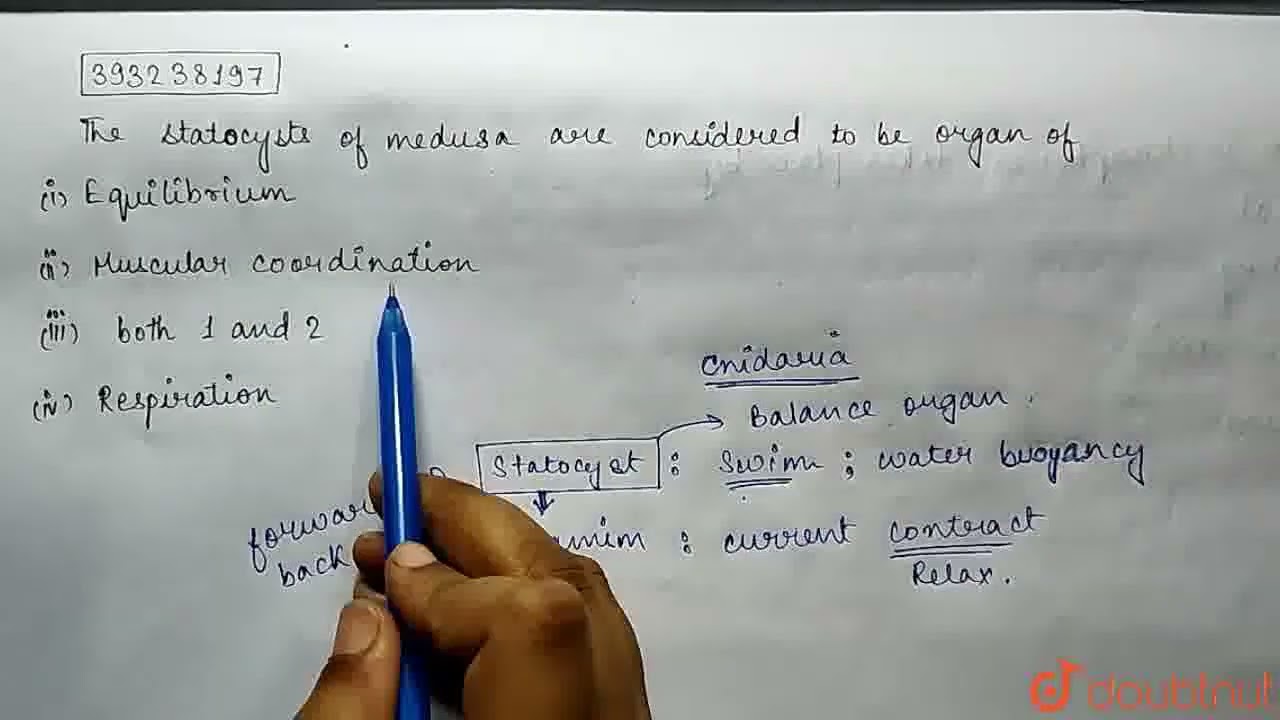 393238197
The statocysts of medusa are considered to be organ of
(i) Equilibrium
(ii) Muscular coordination
(iii) both 1 and 2
(iv) Respiration
Cnidaria
Balance organ.
Statocyst : Swim ; water buoyancy
: current contract
Relax.
back
doubtnut